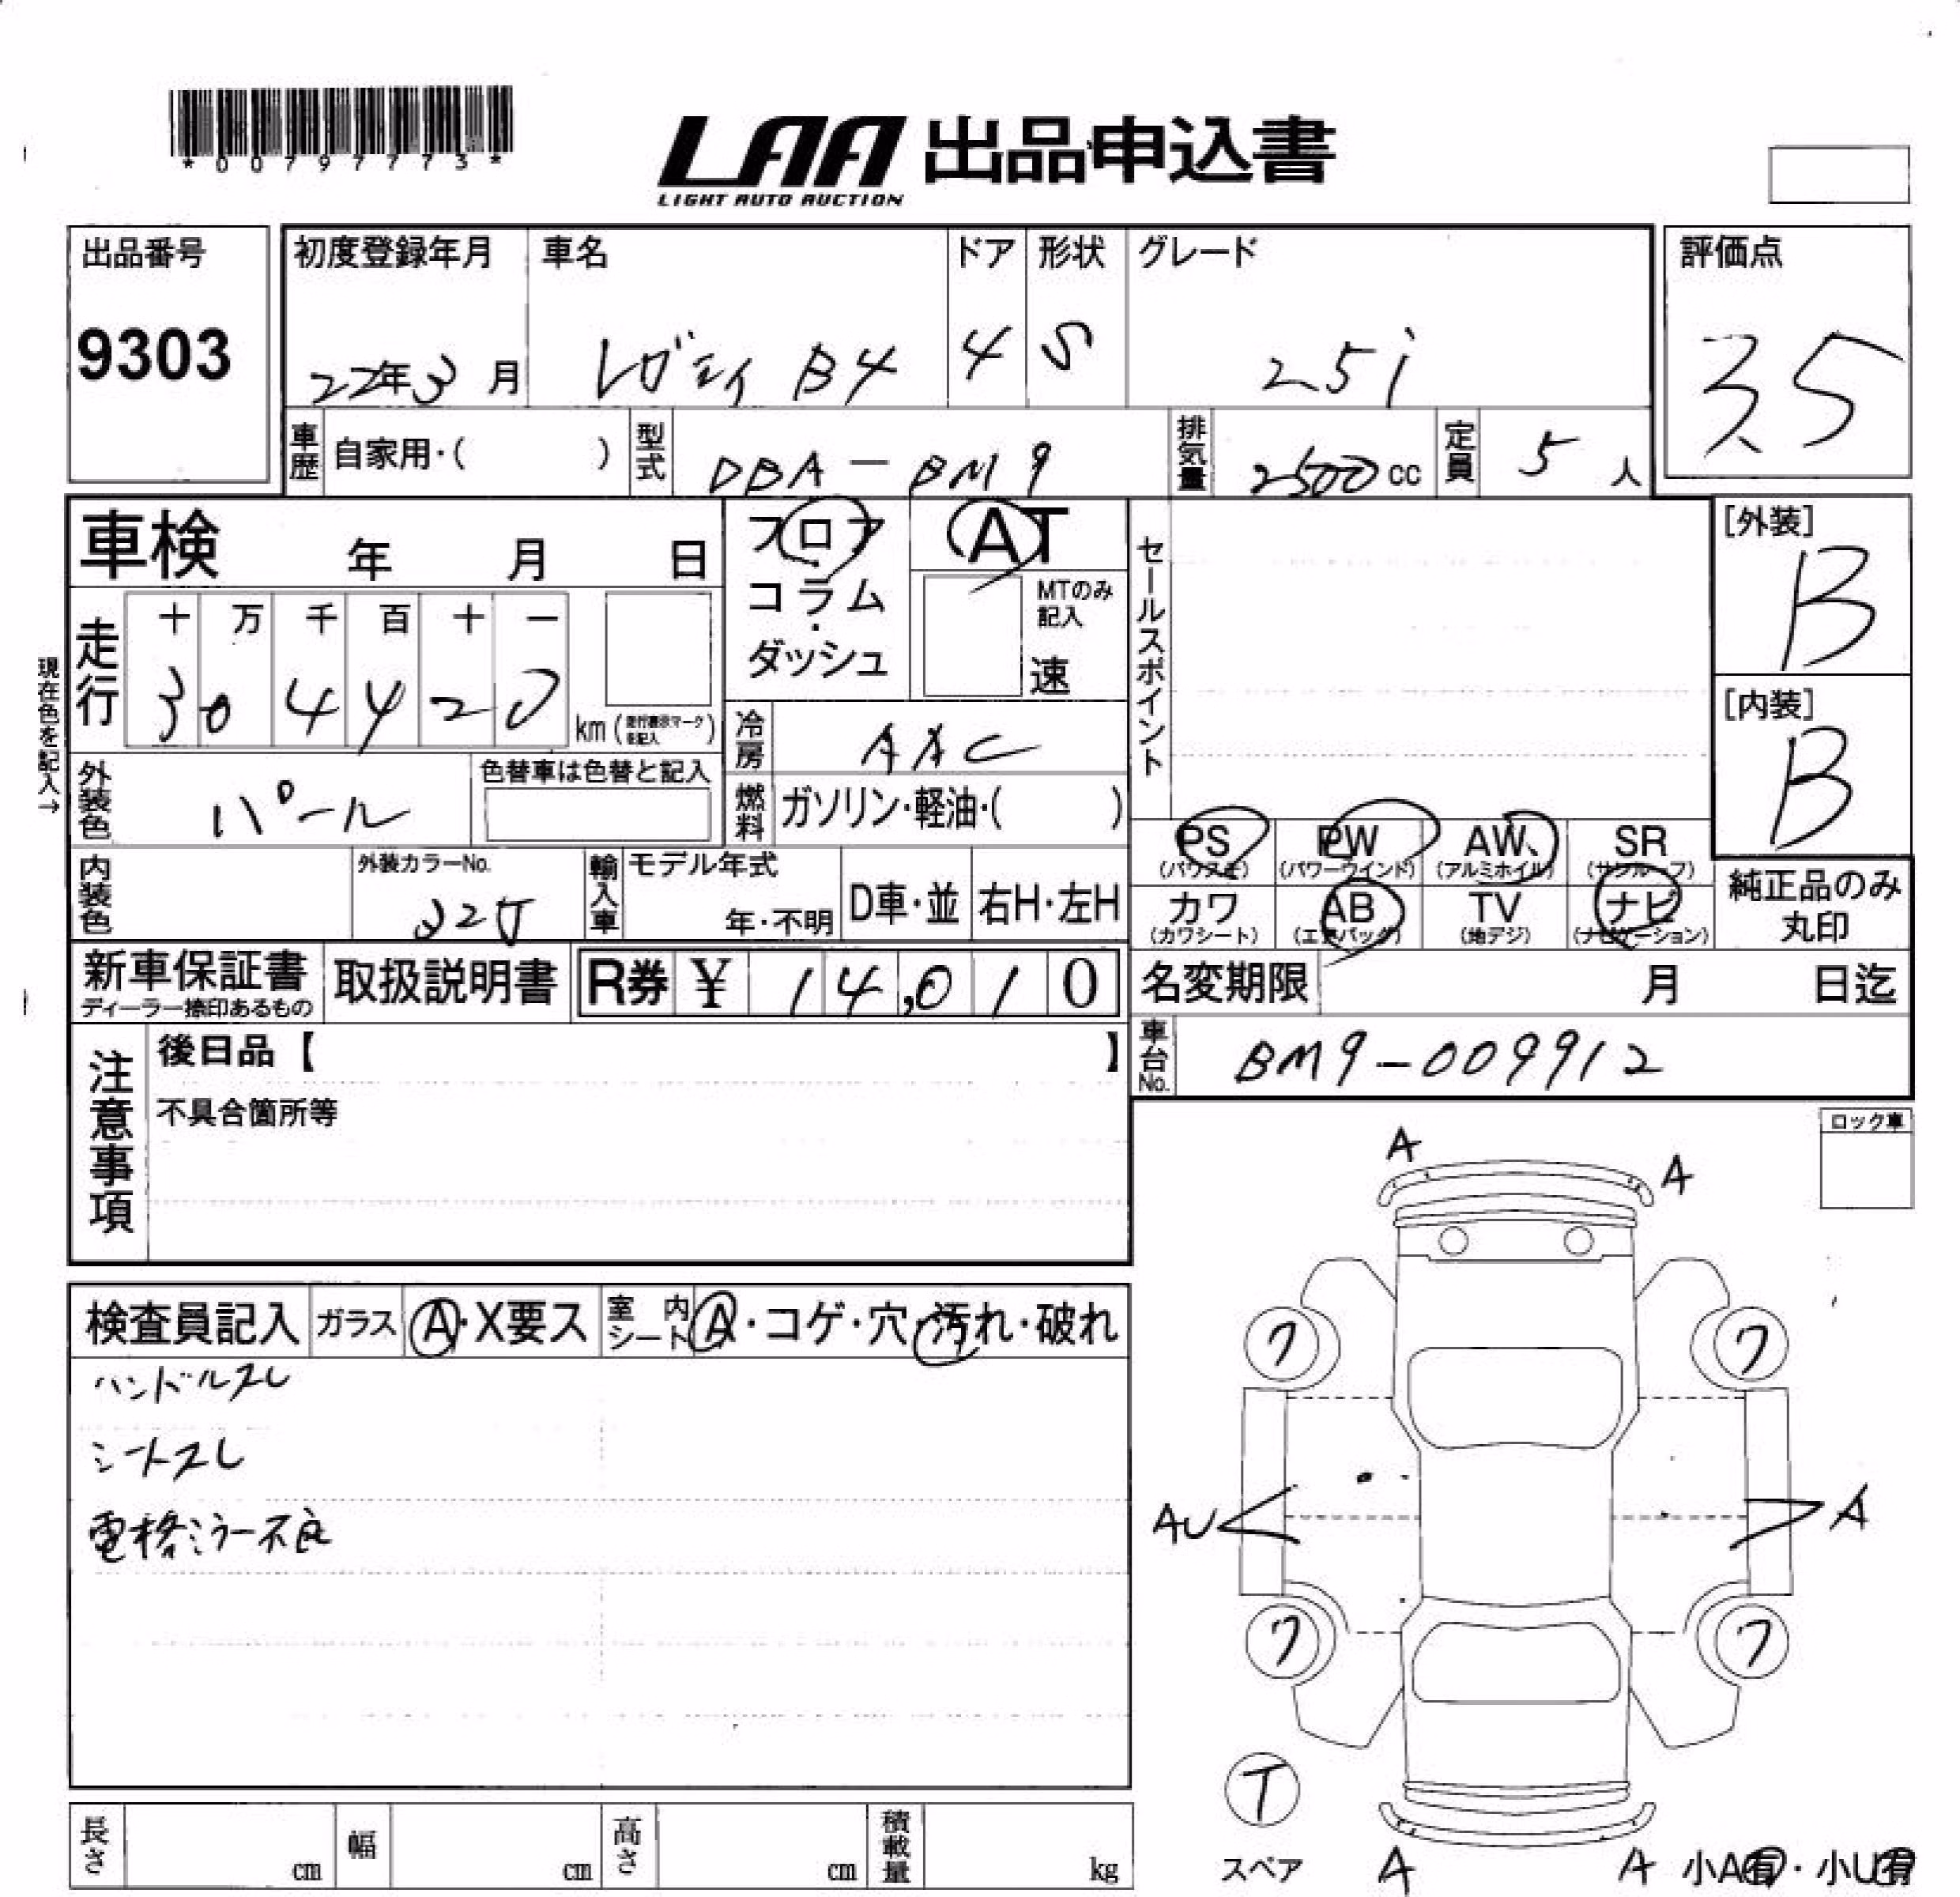 *00797773*
LAA 出品申込書
LIGHT AUTO AUCTION
出品番号 初度登録年月 車名 ドア 形状 グレード 評価点
9303 22年3月 レガシィ B4 4 S 25i 35
車歴 自家用・( ) 型式 DBA-BM9 排気量 2500cc 定員 5人
車検 年 月 日 フロア AT セールスポイント [外装]
コラム MTのみ記入 B
ダッシュ 速
現在色を記入→
走行 十 万 千 百 十 一
3 0 4 4 2 0 km (走行表示マークを記入) [内装]
冷房 AAC B
外装色 パール 色替車は色替と記入
燃料 ガソリン・軽油・( )
PS PW AW SR
(パワステ) (パワーウインド) (アルミホイル) (サンルーフ)
内装色 外装カラーNo. 32J 輸入車 モデル年式 年・不明 D車・並 右H・左H
カワ AB TV ナビ 純正品のみ丸印
(カワシート) (エアバッグ) (地デジ) (ナビゲーション)
新車保証書 取扱説明書 R券 ¥ 14,010 名変期限 月 日迄
ディーラー捺印あるもの
車台No. BM9-009912
注意事項 後日品【 】
不具合箇所等
ロック車
A
A
検査員記入 ガラス A・X要ス 室内シート A・コゲ・穴・汚れ・破れ
ハンドルスレ
ワ ワ
シートスレ
電格ミラー不良
AU A
ワ ワ
T
スペア A A 小A有・小U有
長さ cm 幅 cm 高さ cm 積載量 kg